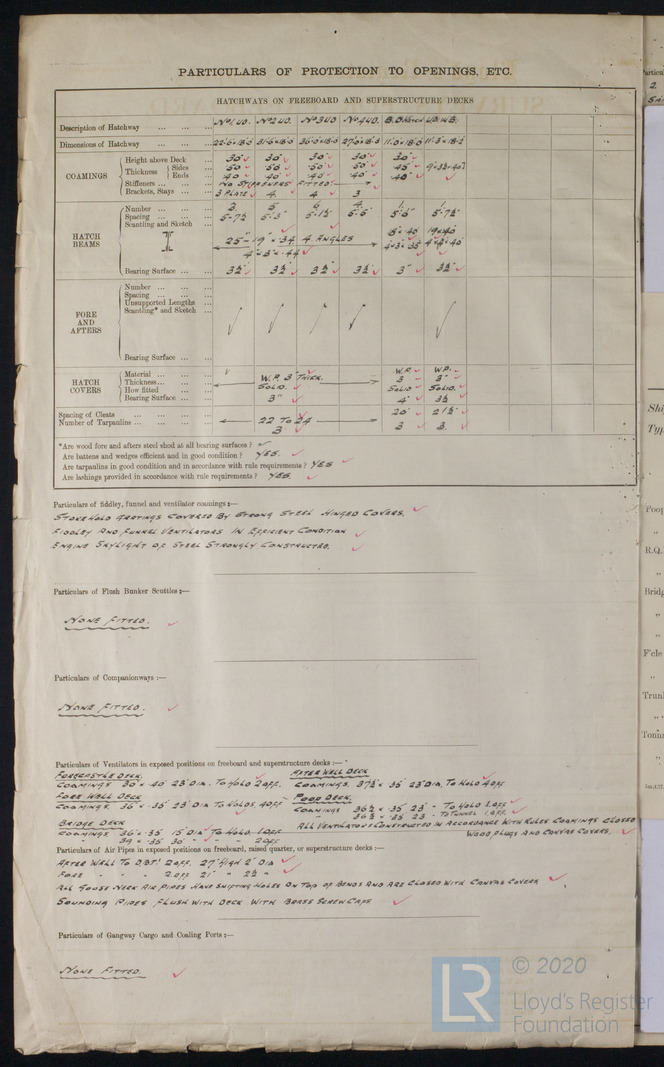 PARTICULARS OF PROTECTION TO OPENINGS, ETC.
HATCHWAYS ON FREEBOARD AND SUPERSTRUCTURE DECKS
Description of Hatchway ... ... ... No 1 U.D. No 2 U.D. No 3 U.D. No 4 U.D.
Dimensions of Hatchway ... ... ... 22'-6"×18'-0 31'-6×18-0 36'-0×18-0 27'-0×18-0 11'-0×18-0 11'-3×18-2
COAMINGS
Height above Deck ... 30" 30" 30" 30" 30"
Thickness Sides ... .50 .50 .50 .50 .45
Ends ... .40 .40 .40 .40 .40
Stiffeners ... ... ... NO STIFFENERS FITTED
Brackets, Stays ... ... 3 PLATE 4 4 3
HATCH BEAMS
Number ... ... ... 3 5 6 4 1 1
Spacing ... ... ... 5-7½ 5-3" 5-1½ 5-5 5'-6" 5-7½
Scantling and Sketch ...
25" - 19" × .34 4 ANGLES
4" × 3" × .44
Bearing Surface ... ... 3½" 3½" 3½" 3½" 3" 3½"
FORE AND AFTERS
Number ... ... ...
Spacing ... ... ...
Unsupported Lengths ...
Scantling* and Sketch ...
Bearing Surface ... ...
HATCH COVERS
Material ... ... ... W.P. 3" THICK. W.P. W.P.
Thickness ... ... ... 3" 3"
How fitted ... ... SOLID. SOLID SOLID.
Bearing Surface ... ... 3" 4" 3½
Spacing of Cleats ... ... ... ... 22 TO 24 20" 21½"
Number of Tarpaulins ... ... ... ... 3 3 3
*Are wood fore and afters steel shod at all bearing surfaces?
Are battens and wedges efficient and in good condition? YES.
Are tarpaulins in good condition and in accordance with rule requirements? YES
Are lashings provided in accordance with rule requirements? YES.
Particulars of fiddley, funnel and ventilator coamings:—
STOKEHOLD GRATINGS COVERED BY STRONG STEEL HINGED COVERS.
FIDDLEY AND FUNNEL VENTILATORS IN EFFICIENT CONDITION
ENGINE SKYLIGHT OF STEEL STRONGLY CONSTRUCTED.
Particulars of Flush Bunker Scuttles:—
NONE FITTED.
Particulars of Companionways:—
NONE FITTED.
Particulars of Ventilators in exposed positions on freeboard and superstructure decks:—
FORECASTLE DECK. AFTER WELL DECK
COAMINGS 30" × .40 23" DIA. TO HOLD 2 OFF. COAMINGS. 37½" × .35 23" DIA. TO HOLD 4 OFF
FORE WELL DECK POOP DECK.
COAMINGS. 36" × .35 23" DIA TO HOLDS. 4 OFF COAMINGS 36½ × .35 23" " TO HOLD 1 OFF
36½ × .35 23 " TO TUNNEL 1 OFF
BRIDGE DECK ALL VENTILATORS CONSTRUCTED IN ACCORDANCE WITH RULES COAMINGS CLOSED
COAMINGS 36" × .35 15" DIA TO HOLD. 1 OFF WOOD PLUGS AND CANVAS COVERS.
" 39 × .35 30 " " " 2 OFF
Particulars of Air Pipes in exposed positions on freeboard, raised quarter, or superstructure decks:—
AFTER WELL TO D.B.T! 2 OFF. 27" HIGH 2" DIA
FORE " " " 2 OFF 21" " 2½ "
ALL GOOSE NECK AIR PIPES HAVE SNIFTING HOLES ON TOP OF BENDS AND ARE CLOSED WITH CANVAS COVERS
SOUNDING PIPES FLUSH WITH DECK WITH BRASS SCREW CAPS
Particulars of Gangway Cargo and Coaling Ports:—
NONE FITTED.
Particu
2
Shi
Typ
Poop
R.Q.
Bridg
F'cle
Trunk
Tonna
LR
© 2020
Lloyd's Register
Foundation